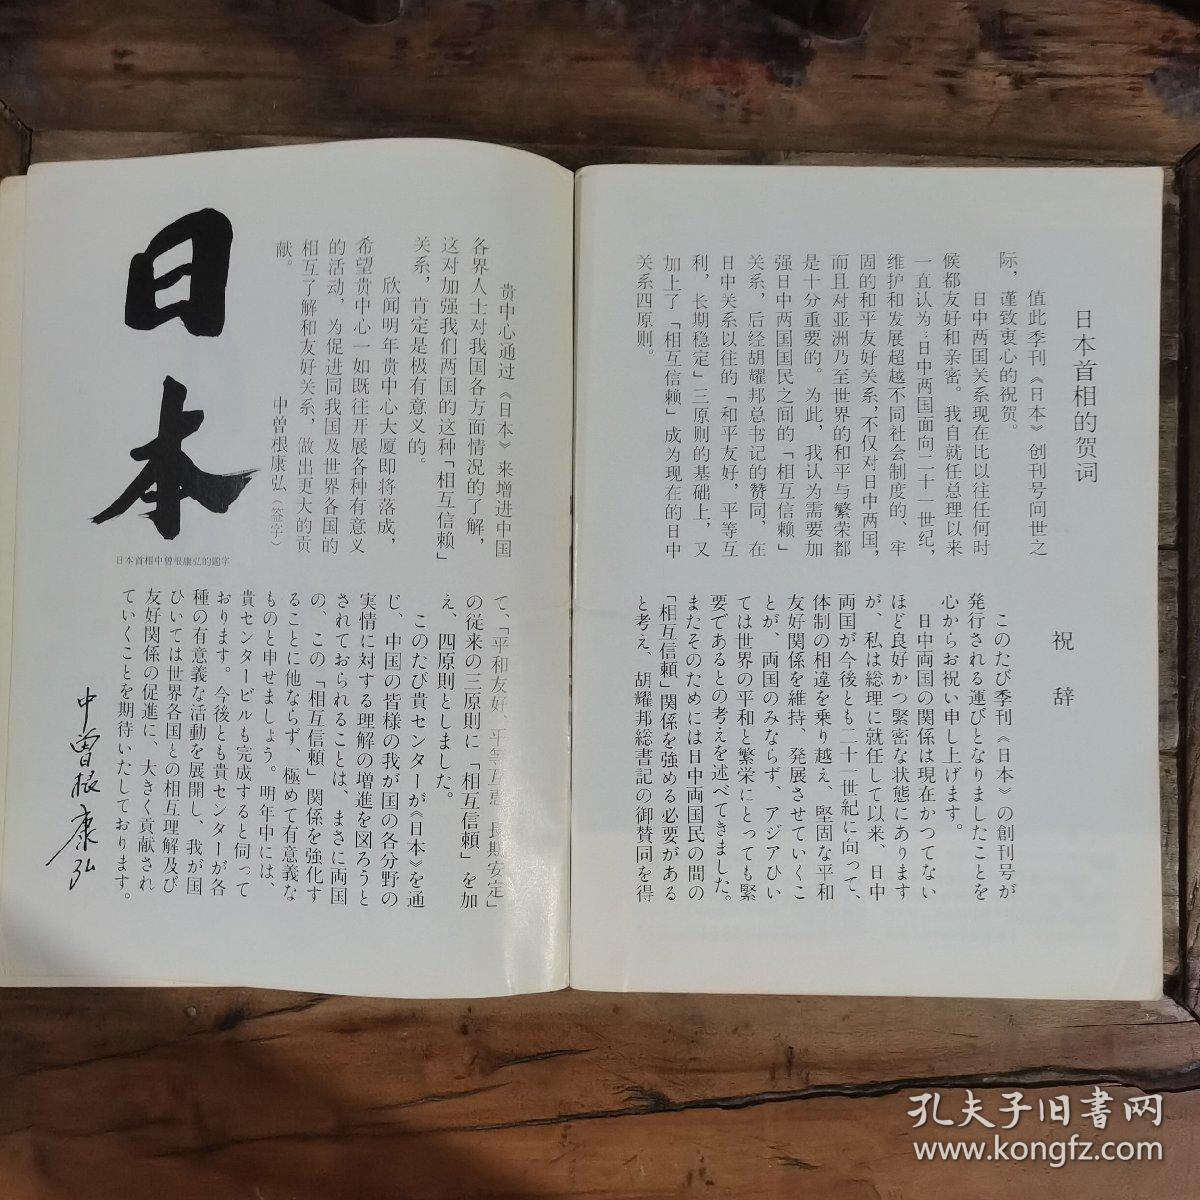 日本首相的贺词
值此季刊《日本》创刊号问世之
际，谨致衷心的祝贺。
日中两国关系现在比以往任何时
候都友好和亲密。我自就任总理以来
一直认为：日中两国面向二十一世纪，
维护和发展超越不同社会制度的、牢
固的和平友好关系，不仅对日中两国，
而且对亚洲乃至世界的和平与繁荣都
是十分重要的。为此，我认为需要加
强日中两国国民之间的「相互信赖」
关系，后经胡耀邦总书记的赞同，在
日中关系以往的「和平友好，平等互
利，长期稳定」三原则的基础上，又
加上了「相互信赖」成为现在的日中
关系四原则。
祝辞
このたび季刊《日本》の創刊号が
発行される運びとなりましたことを
心からお祝い申し上げます。
日中両国の関係は現在かつてない
ほど良好かつ緊密な状態にあります
が、私は総理に就任して以来、日中
両国が今後とも二十一世紀に向って、
体制の相違を乗り越え、堅固な平和
友好関係を維持、発展させていくこ
とが、両国のみならず、アジアひい
ては世界の平和と繁栄にとっても緊
要であるとの考えを述べてきました。
またそのためには日中両国民の間の
「相互信頼」関係を強める必要がある
と考え、胡耀邦総書記の御賛同を得
贵中心通过《日本》来增进中国
各界人士对我国各方面情况的了解，
这对加强我们两国的这种「相互信赖」
关系，肯定是极有意义的。
欣闻明年贵中心大厦即将落成，
希望贵中心一如既往开展各种有意义
的活动，为促进同我国及世界各国的
相互了解和友好关系，做出更大的贡
献。
中曾根康弘（签字）
日本
日本首相中曾根康弘的题字
て、「平和友好、平等互恵、長期安定」
の従来の三原則に「相互信頼」を加
え、四原則としました。
このたび貴センターが《日本》を通
じ、中国の皆様の我が国の各分野の
実情に対する理解の増進を図ろうと
されておられることは、まさに両国
の、この「相互信頼」関係を強化す
ることに他ならず、極めて有意義な
ものと申せましょう。明年中には、
貴センタービルも完成すると伺って
おります。今後とも貴センターが各
種の有意義な活動を展開し、我が国
ひいては世界各国との相互理解及び
友好関係の促進に、大きく貢献され
ていくことを期待いたしております。
中曽根康弘
孔夫子旧书网
www.kongfz.com